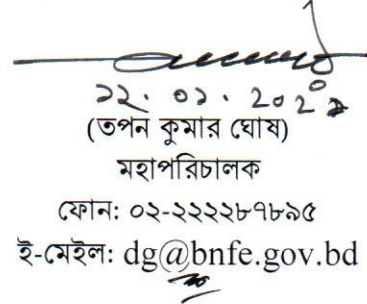 (তপন কুমার ঘোষ)
মহাপরিচালক
ফোন: ০২-২২২২৮৭৮৯৫
ই-মেইল: dg@bnfe.gov.bd